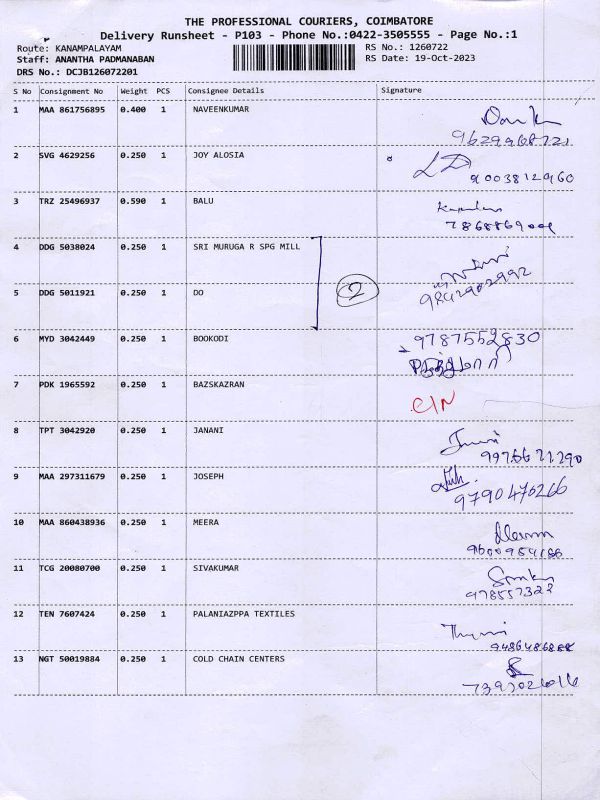 THE PROFESSIONAL COURIERS, COIMBATORE
Delivery Runsheet - P103 - Phone No.:0422-3505555 - Page No.:1
Route: KANAMPALAYAM
RS No.: 1260722
Staff: ANANTHA PADMANABAN
RS Date: 19-Oct-2023
DRS No.: DCJB126072201
S No Consignment No Weight PCS Consignee Details Signature
1 MAA 861756895 0.400 1 NAVEENKUMAR
9629968721
2 SVG 4629256 0.250 1 JOY ALOSIA
9003812960
3 TRZ 25496937 0.590 1 BALU
4 DDG 5038024 0.250 1 SRI MURUGA R SPG MILL
5 DDG 5011921 0.250 1 DO
2
9842902992
6 MYD 3042449 0.250 1 BOOKODI
9787552830
7 PDK 1965592 0.250 1 BAZSKAZRAN
C/N
8 TPT 3042920 0.250 1 JANANI
9976671290
9 MAA 297311679 0.250 1 JOSEPH
9790470266
10 MAA 860438936 0.250 1 MEERA
Meera
11 TCG 20080700 0.250 1 SIVAKUMAR
978557322
12 TEN 7607424 0.250 1 PALANIAZPPA TEXTILES
9486486888
13 NGT 50019884 0.250 1 COLD CHAIN CENTERS